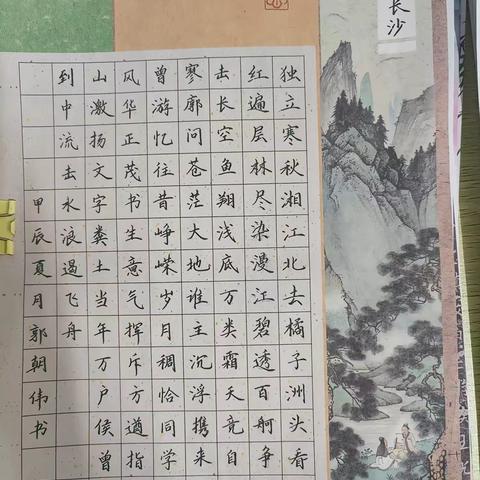 长沙
独立寒秋湘江北去橘子洲头看
红遍层林尽染漫江碧透百舸争
击长空鱼翔浅底万类霜天竞自
寥廓问苍茫大地谁主沉浮携来
曾游忆往昔峥嵘岁月稠恰同学
风华正茂书生意气挥斥方遒指
山激扬文字粪土当年万户侯曾
到中流击水浪遏飞舟
甲辰夏月郭朝伟书